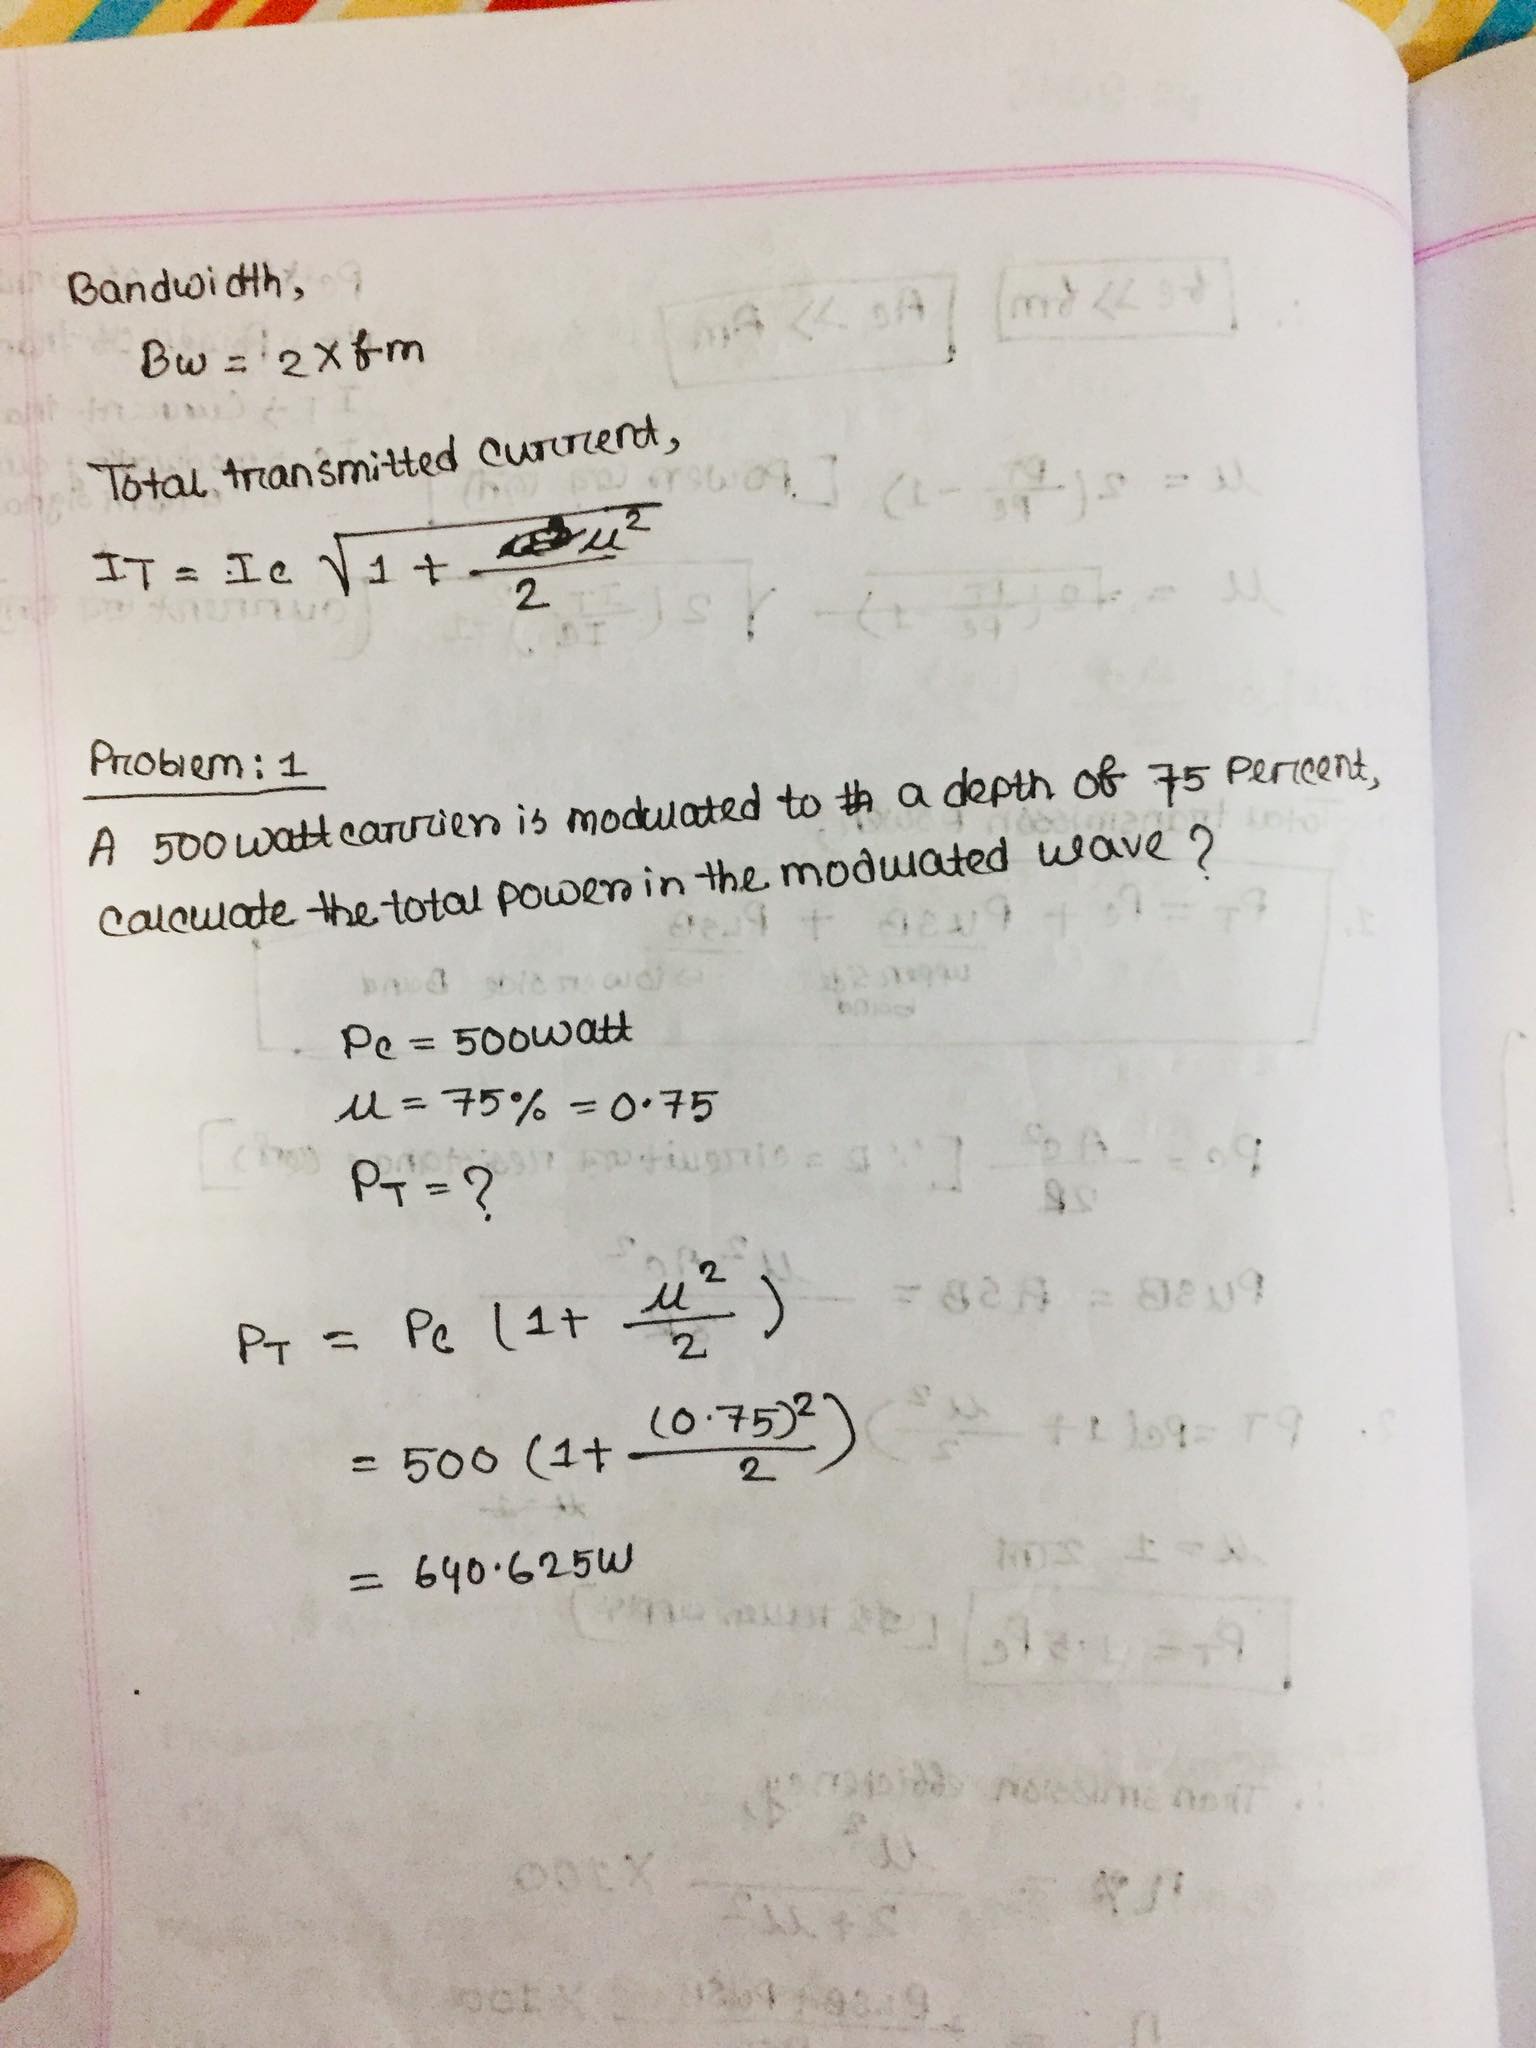 Bandwidth,
BW = 2 x fm
Total transmitted current,
IT = Ic √1 + μ²/2
Problem: 1
A 500 watt carrier is modulated to a depth of 75 percent,
calculate the total power in the modulated wave?
Pc = 500 watt
μ = 75% = 0.75
PT = ?
PT = Pc (1 + μ²/2)
= 500 (1 + (0.75)²/2)
= 640.625W